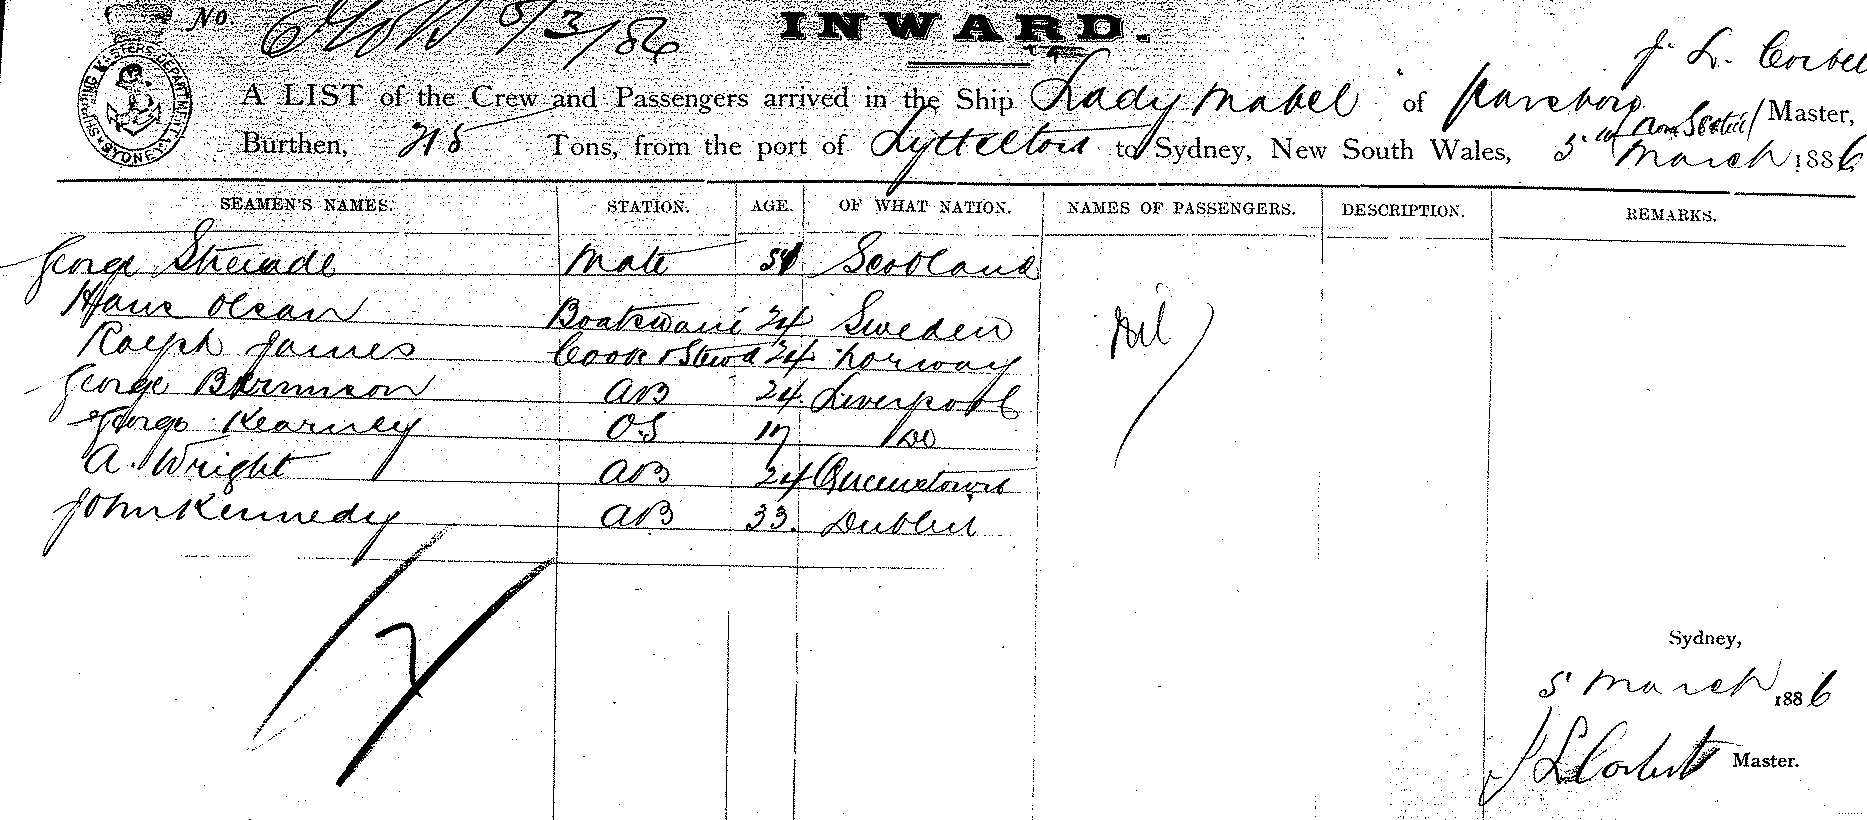 No 5/3/86
INWARD.
SHIPPING MASTERS DEPARTMENT SYDNEY
J. L. Corbet
A LIST of the Crew and Passengers arrived in the Ship Lady Mabel of Parsboro Nova Scotia Master,
Burthen, Tons, from the port of Lyttelton to Sydney, New South Wales, 5th March 1886
SEAMEN'S NAMES. STATION. AGE. OF WHAT NATION. NAMES OF PASSENGERS. DESCRIPTION. REMARKS.
George Mate Scotland
Hans Olsan Boatswain 24 Sweden Nil
Ralph James Cook & Stewd 24 Norway
George AB 24 Liverpool
George Kearney OS 17 Do
A. Wright AB 24 Queenstown
John Kennedy AB 33. Dublin
7
Sydney,
5 March 1886
J L Corbett Master.